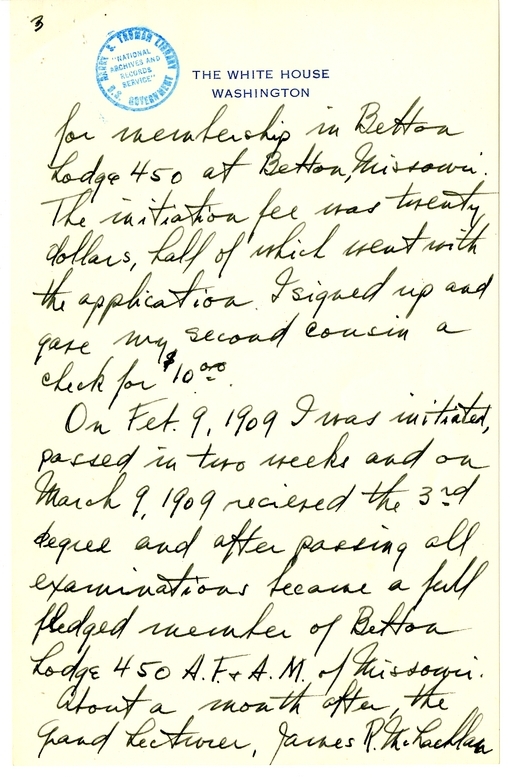 3
HARRY S. TRUMAN LIBRARY
"NATIONAL
ARCHIVES AND
RECORDS
SERVICE"
U.S. GOVERNMENT
THE WHITE HOUSE
WASHINGTON
for membership in Belton
Lodge 450 at Belton, Missouri.
The initiation fee was twenty
dollars, half of which went with
the application. I signed up and
gave my second cousin a
check for $10 00.
On Feb. 9, 1909 I was initiated,
passed in two weeks and on
March 9, 1909 recieved the 3rd
degree and after passing all
examinations became a full
fledged member of Belton
Lodge 450 A.F. & A.M. of Missouri.
About a month after, the
Grand Lecturer, James R. McLachlan